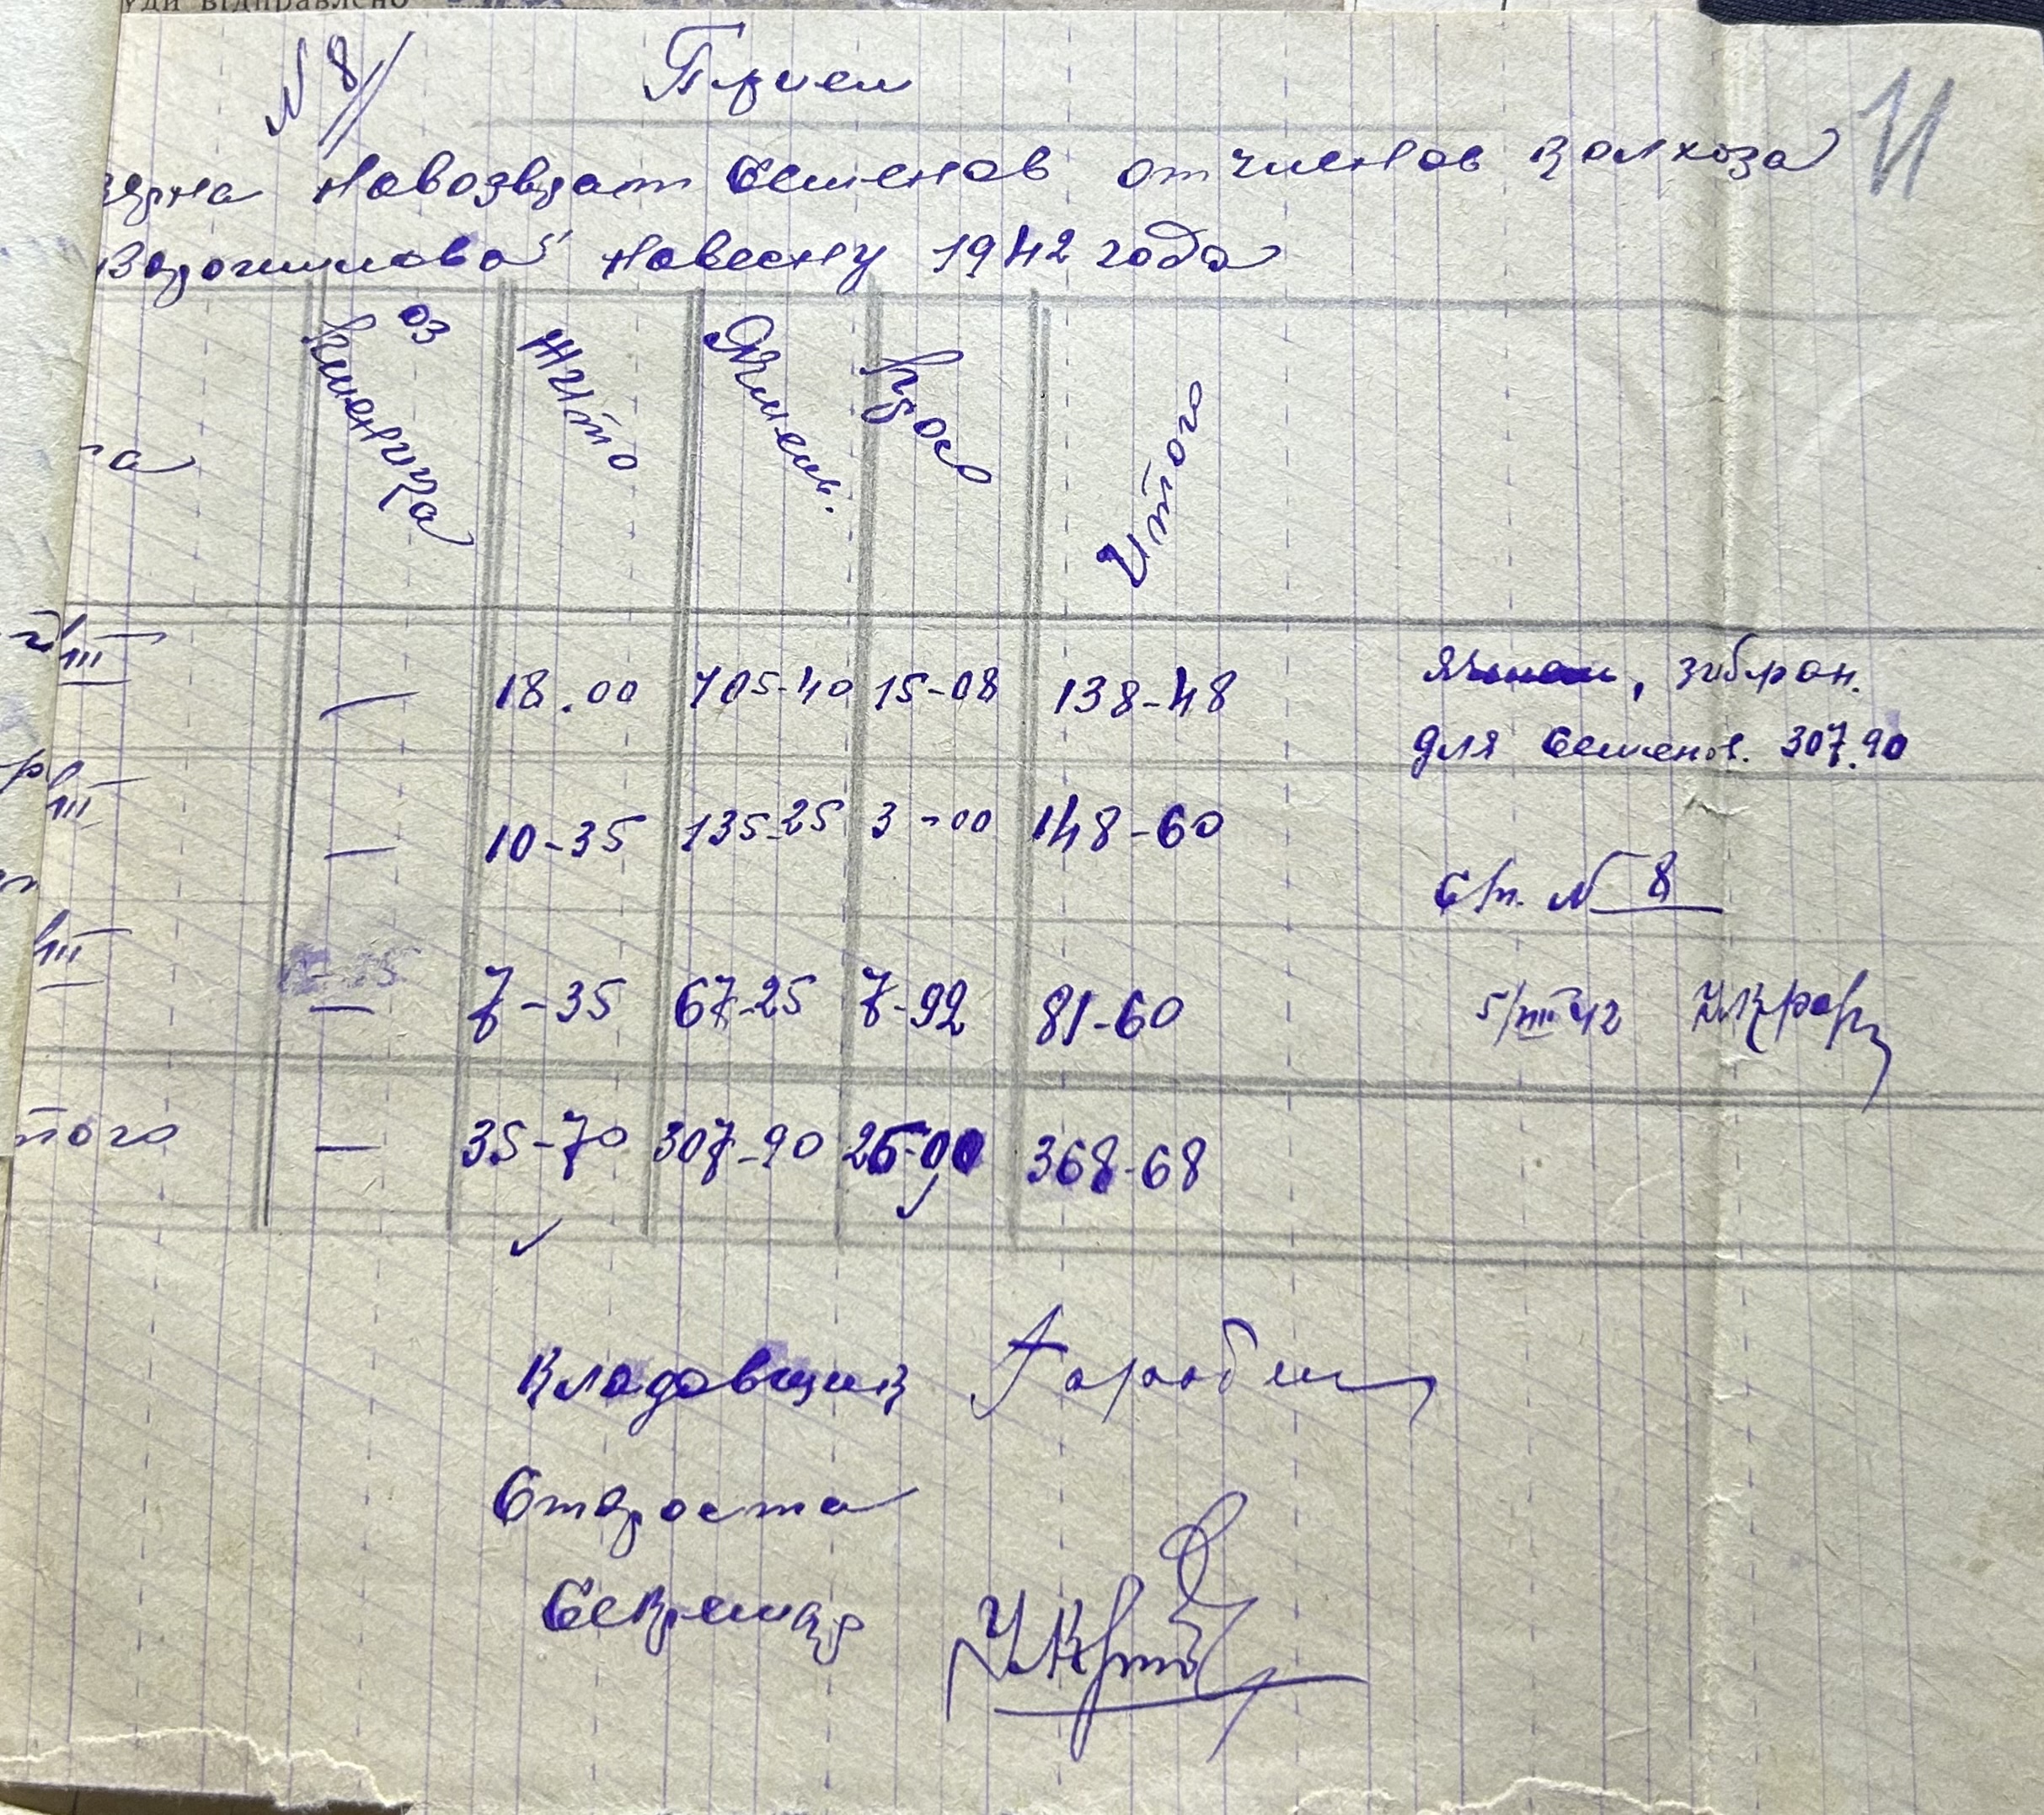 уди відправлено
N 8
Прием
11
зерна На возврат Семенов от членов колхоза
Ворошилова На весну 1942 года
та
оз Пшеница
Жито
Ячмень.
Просо
Итого
III — 18.00 105-40 15-08 138-48
III — 10-35 135-25 3-00 148-60
III — 7-35 67-25 7-92 81-60
того — 35-70 307-90 26-00 368-68
зибран.
для Семенов. 307.90
Ст. N 8
5/III 42
Кладовщик
Староста
Секретар